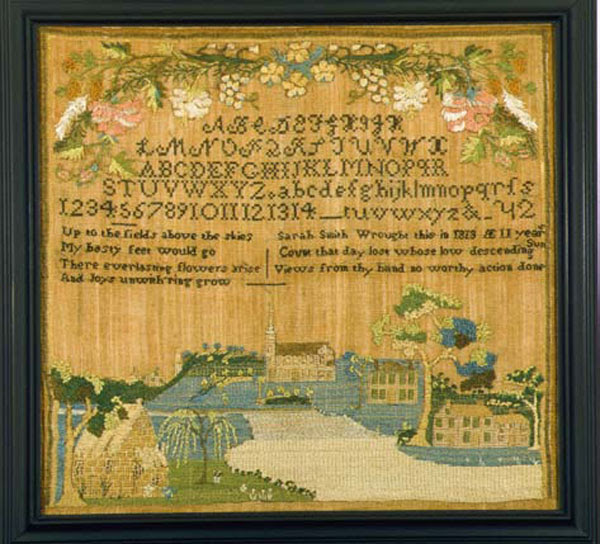 ABCDEFGHIJK
LMNOPQRSTUVWX
ABCDEFGHIJKLMNOPQR
STUVWXYZ. abcdefghijklmnopqrſs
1234567891011121314 tuvwxyz&
Up to the fields above the skies
My hasty feet would go
There everlasting flowers arise
And Joys unwith'ring grow
Sarah Smith Wrought this in 1813 Æ 11 year
Count that day lost whose low descending Sun
Views from thy hand no worthy action done